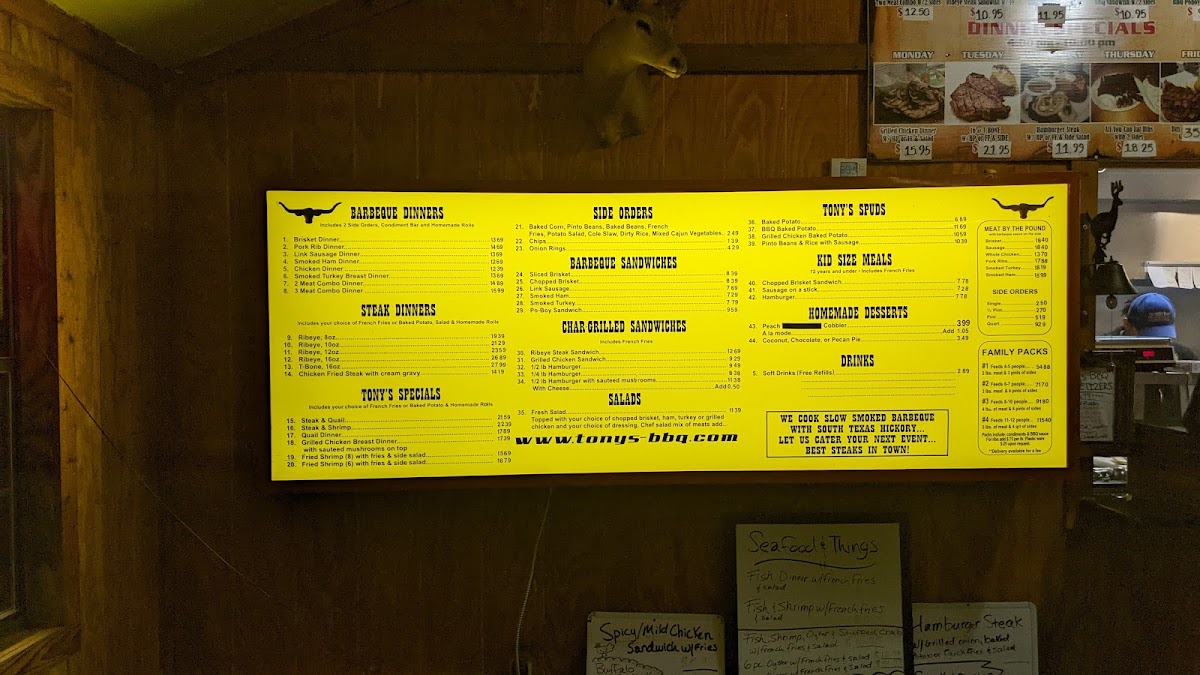 Two Meat Combo W/2 Sides
$12.50
$10.95
11.95
$10.95
DINNER SPECIALS
MONDAY
TUESDAY
THURSDAY
Grilled Chicken Dinner
$15.95
16 oz T-BONE
W/ BP or FF & SIDE
$21.95
Hamburger Steak
W/ BP or FF & Side Salad
$11.99
All You Can Eat Ribs
with 2 Sides
$18.25
BARBEQUE DINNERS
Includes 2 Side Orders, Condiment Bar and Homemade Rolls
1. Brisket Dinner 13.69
2. Pork Rib Dinner 14.69
3. Link Sausage Dinner 13.69
4. Smoked Ham Dinner 12.69
5. Chicken Dinner 12.39
6. Smoked Turkey Breast Dinner 13.69
7. 2 Meat Combo Dinner 14.89
8. 3 Meat Combo Dinner 15.99
STEAK DINNERS
Includes your choice of French Fries or Baked Potato, Salad & Homemade Rolls
9. Ribeye, 8oz 19.39
10. Ribeye, 10oz 21.29
11. Ribeye, 12oz 23.59
12. Ribeye, 16oz 26.89
13. T-Bone, 16oz 27.99
14. Chicken Fried Steak with cream gravy 14.19
TONY'S SPECIALS
Includes your choice of French Fries or Baked Potato, Salad & Homemade Rolls
15. Steak & Quail 21.59
16. Steak & Shrimp 22.39
17. Quail Dinner 17.89
18. Grilled Chicken Breast Dinner 17.39
with sauteed mushrooms on top
19. Fried Shrimp (8) with fries & side salad 15.69
20. Fried Shrimp (6) with fries & side salad
SIDE ORDERS
21. Baked Corn, Pinto Beans, Baked Beans, French
Fries, Potato Salad, Cole Slaw, Dirty Rice, Mixed Cajun Vegetables. 2.49
22. Chips 1.39
23. Onion Rings 4.29
BARBEQUE SANDWICHES
24. Sliced Brisket 8.39
25. Chopped Brisket 8.39
26. Link Sausage 7.69
27. Smoked Ham 7.29
28. Smoked Turkey 7.79
29. Po-Boy Sandwich 9.58
CHAR-GRILLED SANDWICHES
Includes French Fries
30. Ribeye Steak Sandwich 12.69
31. Grilled Chicken Sandwich 9.29
32. 1/2 lb Hamburger 9.49
33. 1/4 lb Hamburger 8.38
34. 1/2 lb Hamburger with sauteed mushrooms 11.38
With Cheese Add 0.50
SALADS
35. Fresh Salad 11.39
Topped with your choice of chopped brisket, ham, turkey or grilled
chicken and your choice of dressing. Chef salad mix of meats add...
www.tonys-bbq.com
TONY'S SPUDS
36. Baked Potato 6.69
37. BBQ Baked Potato 11.69
38. Grilled Chicken Baked Potato 10.59
39. Pinto Beans & Rice with Sausage 10.39
KID SIZE MEALS
12 years and under - Includes French Fries
40. Chopped Brisket Sandwich 7.78
41. Sausage on a stick 7.28
42. Hamburger 7.78
HOMEMADE DESSERTS
43. Peach Cobbler 3.99
A la mode Add 1.05
44. Coconut, Chocolate, or Pecan Pie 3.49
DRINKS
5. Soft Drinks (Free Refills) 2.89
WE COOK SLOW SMOKED BARBEQUE
WITH SOUTH TEXAS HICKORY...
LET US CATER YOUR NEXT EVENT...
BEST STEAKS IN TOWN!
MEAT BY THE POUND
with barbecue sauce on the side
Brisket 18.40
Sausage 16.40
Whole Chicken 13.70
Pork Ribs 17.88
Smoked Turkey 18.19
Smoked Ham 15.99
SIDE ORDERS
Single 2.50
½ Pint 2.70
Pint 5.19
Quart 9.28
FAMILY PACKS
#1 Feeds 4-5 people 54.88
2 lbs. meat & 3 pints of sides
#2 Feeds 6-7 people
3 lbs. meat & 4 pints of sides
#3 Feeds 8-10 people 91.80
4 lbs. of meat & 6 pints of sides
#4 Feeds 11-12 people 115.40
5 lbs. of meat & 4 qt of sides
Packs include: condiments & BBQ sauce
*Delivery available for a fee
Seafood & Things
Fish Dinner w/French Fries
& salad
Fish & Shrimp w/French fries
& Salad
Fish, Shrimp, Oyster & Stuffed Crab
w/French fries & Salad
6 pc. Oyster w/French fries & salad
w/French Fries & Salad
Spicy/Mild Chicken
Sandwich w/Fries
Buffalo
Hamburger Steak
w/Grilled onion, baked